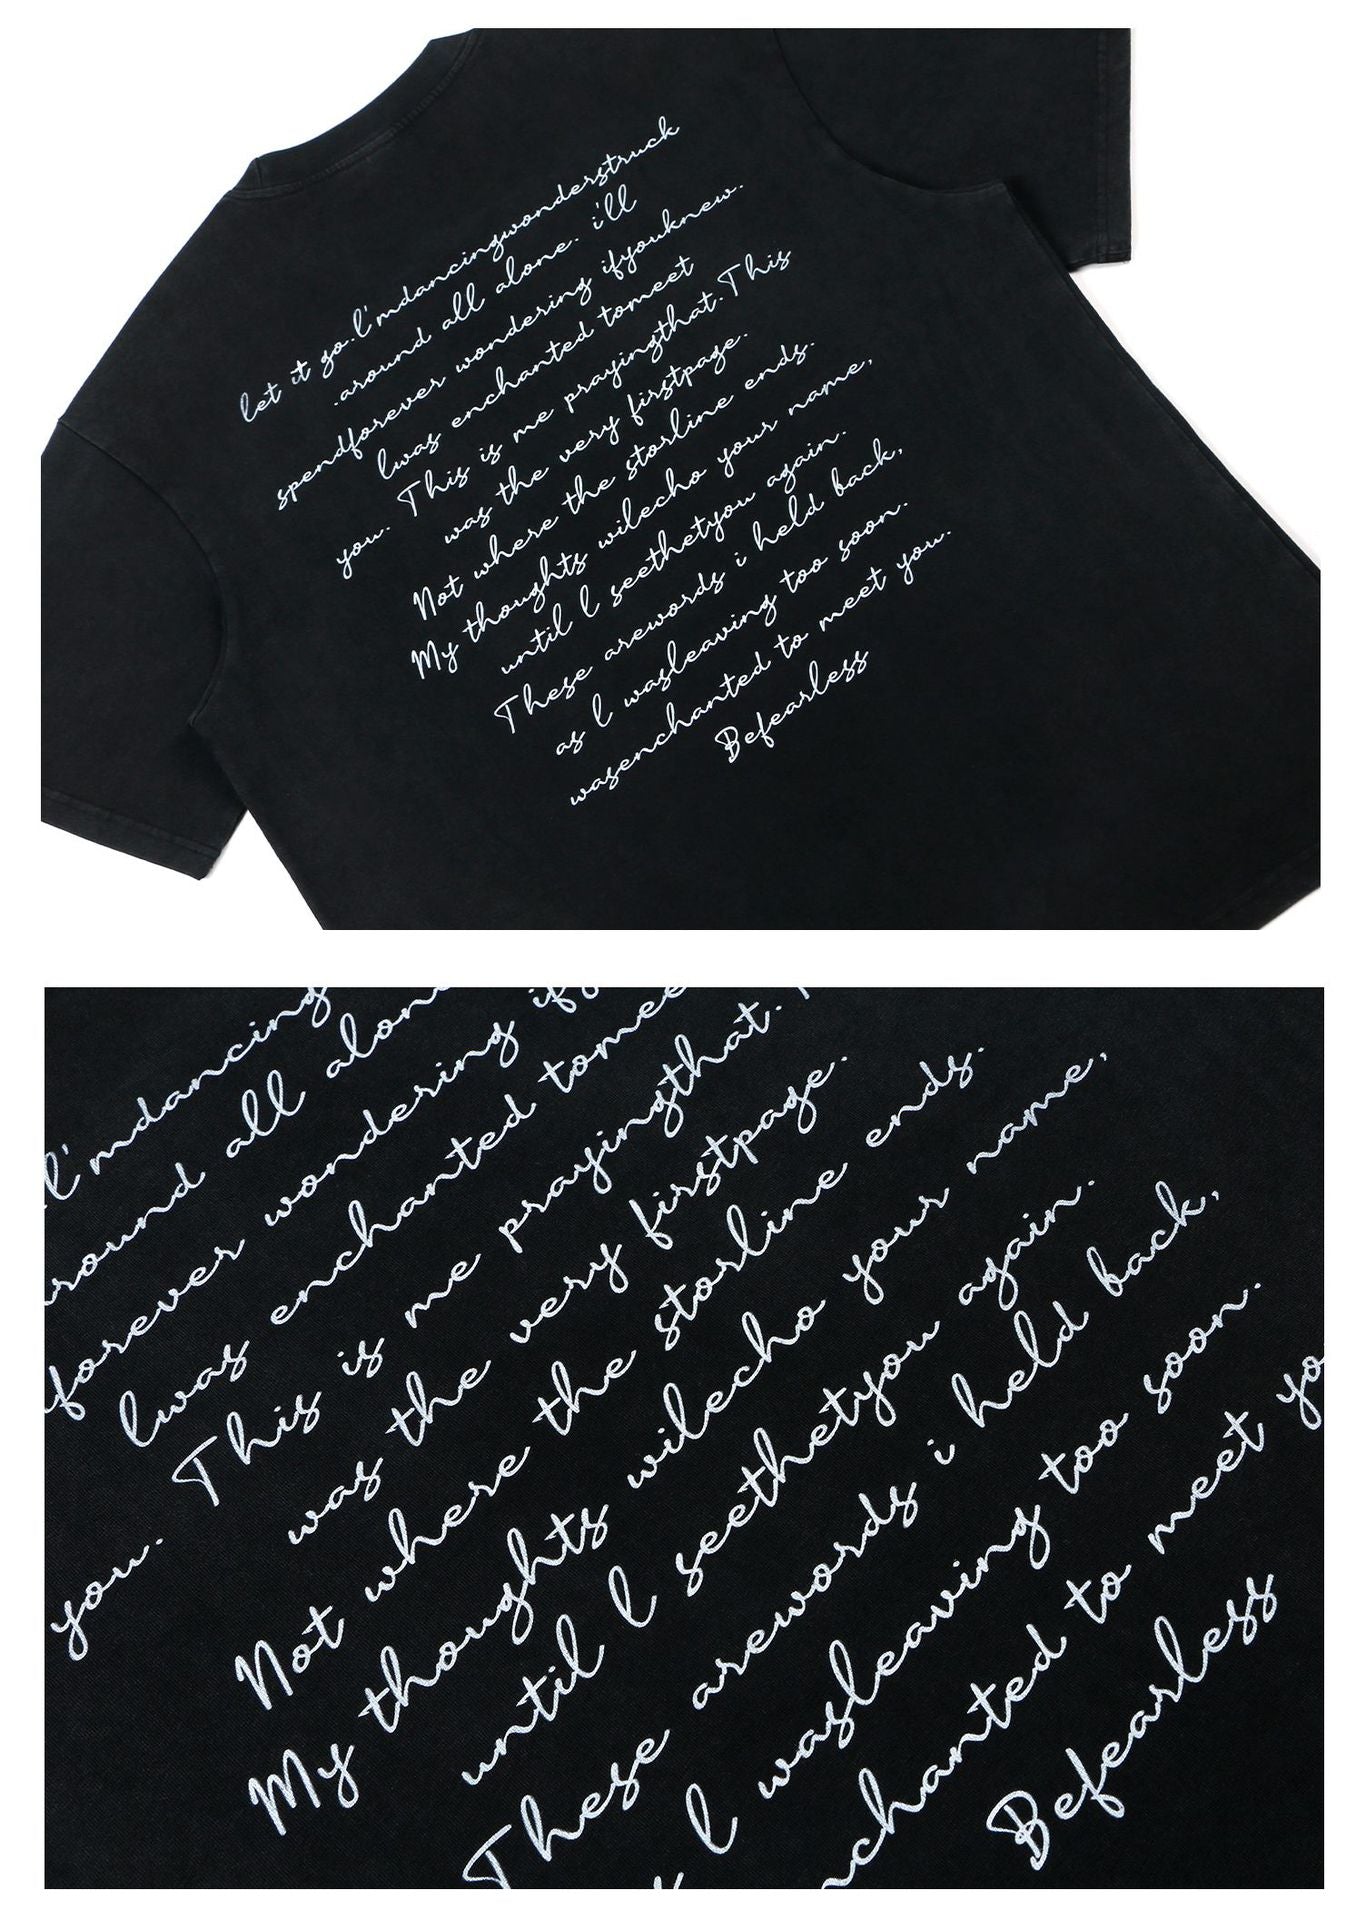 let it go.l'mdancingwonderstruck
.around all alone. i'll
spendforever wondering ifyouknew.
lwas enchanted tomeet
you. This is me prayingthat.This
was the very firstpage.
Not where the storline ends.
My thoughts wilecho your name,
until l seethetyou again.
These arewords i held back,
as l wasleaving too soon.
wasenchanted to meet you.
Befearless
l'mdancing
around all alon
forever wondering ify
lwas enchanted tomee
This is me prayingthat.
you. was the very firstpage.
Not where the storline ends.
My thoughts wilecho your name,
until l seethetyou again.
These arewords i held back,
s l wasleaving too soon.
nchanted to meet yo
Befearless